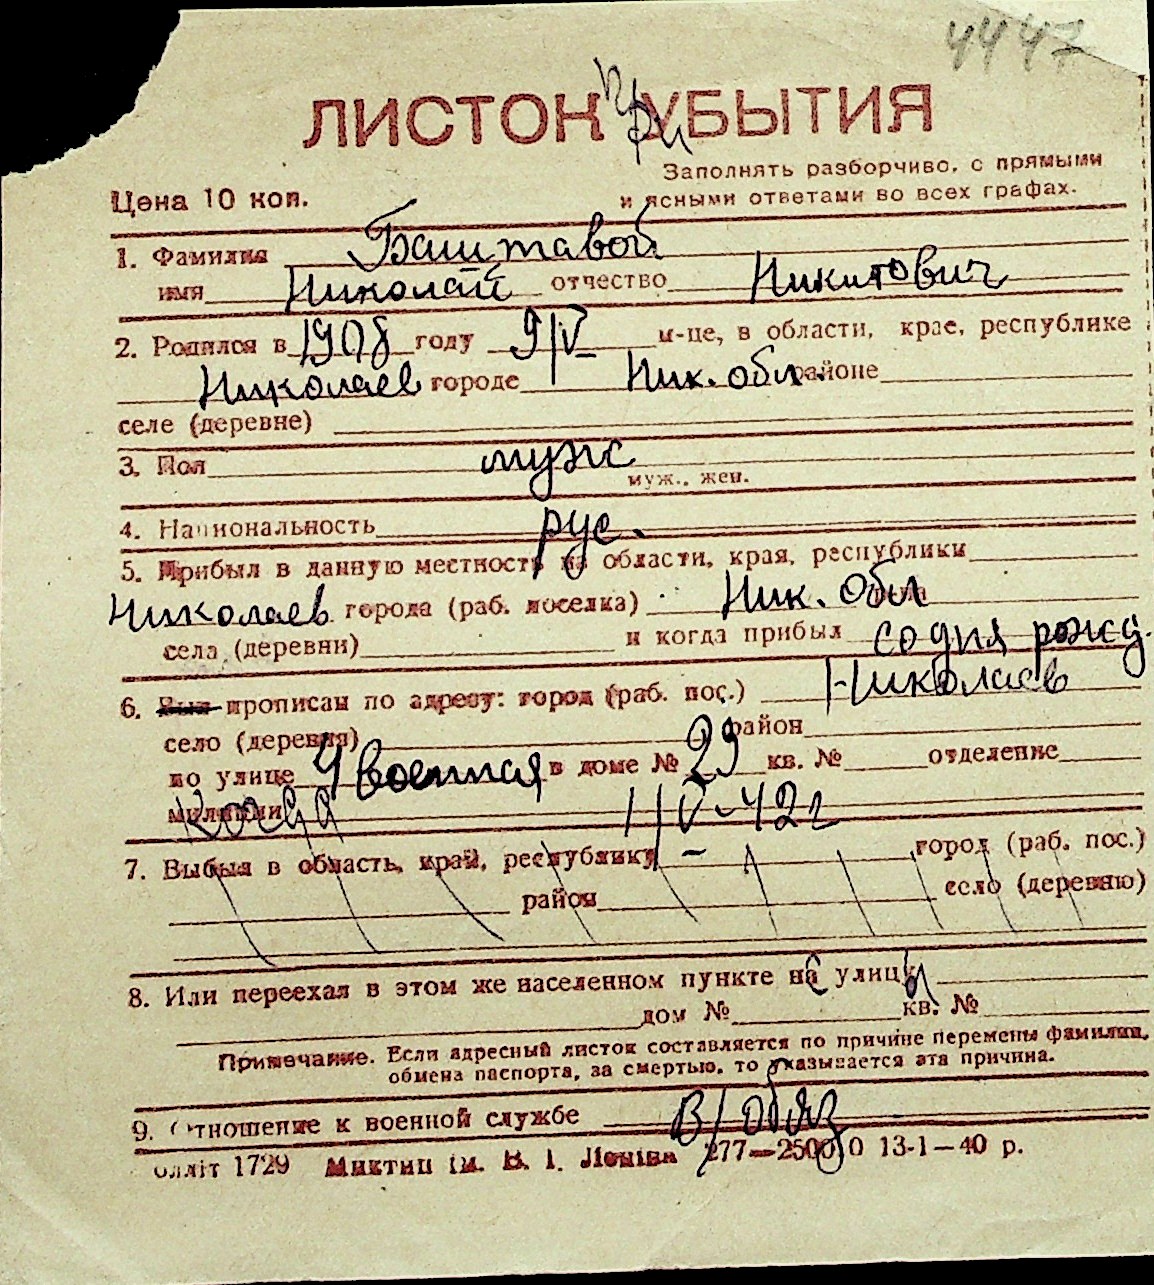 4447
ЛИСТОК УБЫТИЯ
при
Заполнять разборчиво, с прямыми
Цена 10 коп. и ясными ответами во всех графах.
1. Фамилия Баштавой
имя Николай отчество Никитович
2. Родился в 1908 году 9/V м-це, в области, крае, республике
Николаев городе Ник. обл. районе
селе (деревне)
3. Пол муж
муж., жен.
4. Национальность рус.
5. Прибыл в данную местность из области, края, республики
Николаев города (раб. поселка) Ник. обл
села (деревни) и когда прибыл со дня рожд.
6. Был прописан по адресу: город (раб. пос.) Николаев
село (деревня) район
по улице 4 военная в доме № 29 кв. № отделение
милиции 1/V-42 г
7. Выбыл в область, край, республику - город (раб. пос.)
район село (деревню)
8. Или переехал в этом же населенном пункте на улицу
дом № кв. №
Примечание. Если адресный листок составляется по причине перемены фамилии,
обмена паспорта, за смертью, то указывается эта причина.
9. Отношение к военной службе в/обяз
1729 Миктип ім. В. І. Леніна 277—25000 13-1—40 р.